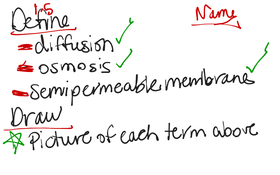 1-5
Define Name
- diffusion
- osmosis
- Semipermeable membrane
Draw
☆ Picture of each term above